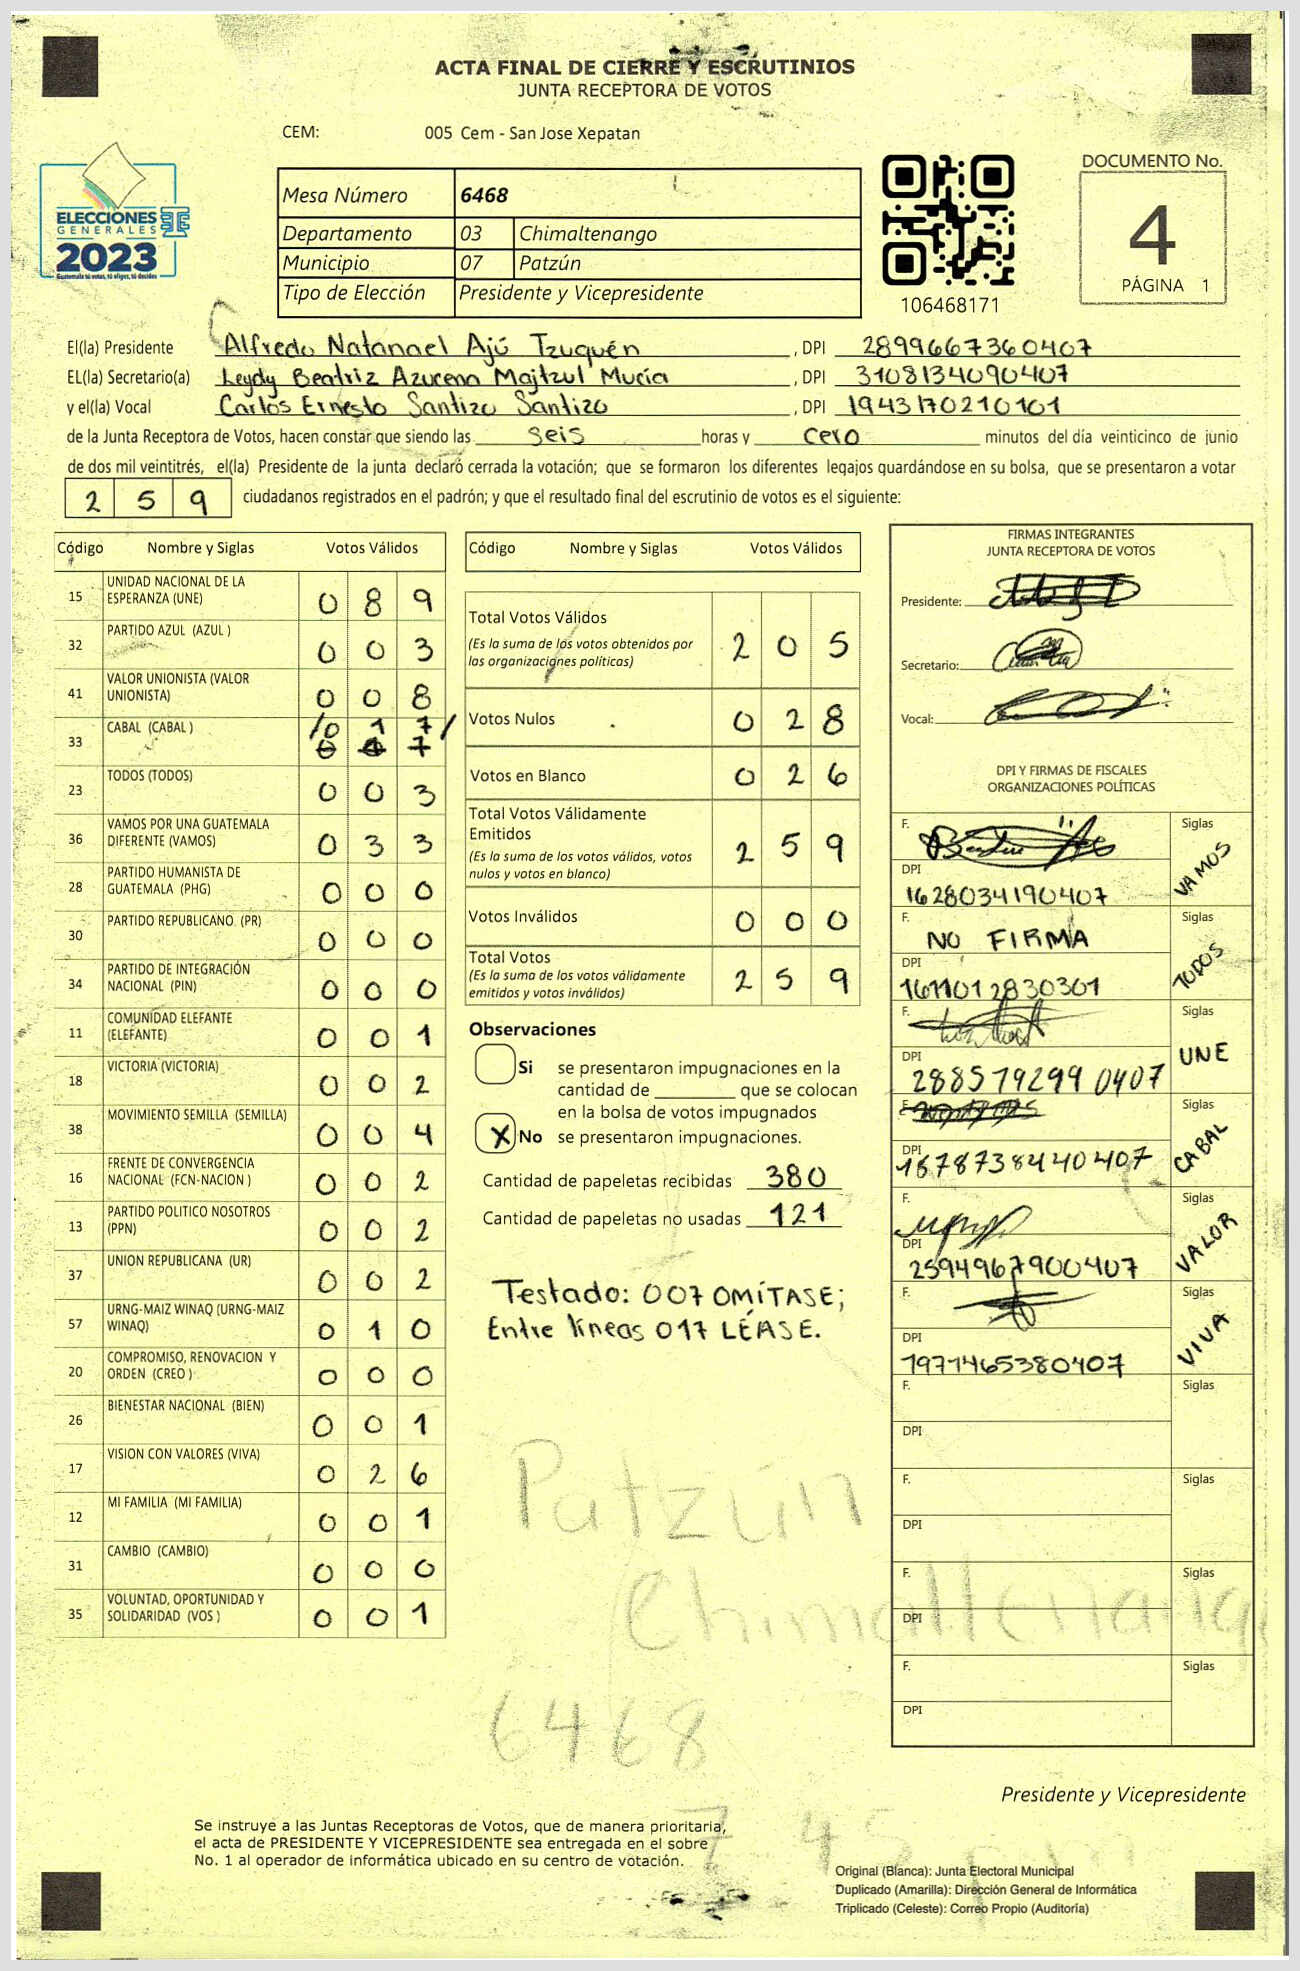 ACTA FINAL DE CIERRE Y ESCRUTINIOS
JUNTA RECEPTORA DE VOTOS
CEM: 005 Cem - San Jose Xepatan
ELECCIONES
GENERALES
2023
Guatemala tú votas, tú eliges, tú decides
Mesa Número 6468
Departamento 03 Chimaltenango
Municipio 07 Patzún
Tipo de Elección Presidente y Vicepresidente
106468171
DOCUMENTO No.
4
PÁGINA 1
El(la) Presidente Alfredo Natanael Ajú Tzuquén , DPI 2899667360407
EL(la) Secretario(a) Leydy Beatriz Azucena Majtzul Mucía , DPI 3108134090407
y el(la) Vocal Carlos Ernesto Santizo Santizo , DPI 1943170210101
de la Junta Receptora de Votos, hacen constar que siendo las seis horas y cero minutos del día veinticinco de junio
de dos mil veintitrés, el(la) Presidente de la junta declaró cerrada la votación; que se formaron los diferentes legajos quardándose en su bolsa, que se presentaron a votar
2 5 9 ciudadanos registrados en el padrón; y que el resultado final del escrutinio de votos es el siguiente:
Código Nombre y Siglas Votos Válidos
15 UNIDAD NACIONAL DE LA ESPERANZA (UNE) 0 8 9
32 PARTIDO AZUL (AZUL ) 0 0 3
41 VALOR UNIONISTA (VALOR UNIONISTA) 0 0 8
33 CABAL (CABAL ) /0 1 7/
0 0 7
23 TODOS (TODOS) 0 0 3
36 VAMOS POR UNA GUATEMALA DIFERENTE (VAMOS) 0 3 3
28 PARTIDO HUMANISTA DE GUATEMALA (PHG) 0 0 0
30 PARTIDO REPUBLICANO (PR) 0 0 0
34 PARTIDO DE INTEGRACIÓN NACIONAL (PIN) 0 0 0
11 COMUNIDAD ELEFANTE (ELEFANTE) 0 0 1
18 VICTORIA (VICTORIA) 0 0 2
38 MOVIMIENTO SEMILLA (SEMILLA) 0 0 4
16 FRENTE DE CONVERGENCIA NACIONAL (FCN-NACION ) 0 0 2
13 PARTIDO POLITICO NOSOTROS (PPN) 0 0 2
37 UNION REPUBLICANA (UR) 0 0 2
57 URNG-MAIZ WINAQ (URNG-MAIZ WINAQ) 0 1 0
20 COMPROMISO, RENOVACION Y ORDEN (CREO ) 0 0 0
26 BIENESTAR NACIONAL (BIEN) 0 0 1
17 VISION CON VALORES (VIVA) 0 2 6
12 MI FAMILIA (MI FAMILIA) 0 0 1
31 CAMBIO (CAMBIO) 0 0 0
35 VOLUNTAD, OPORTUNIDAD Y SOLIDARIDAD (VOS ) 0 0 1
Código Nombre y Siglas Votos Válidos
Total Votos Válidos 2 0 5
(Es la suma de los votos obtenidos por
las organizaciones políticas)
Votos Nulos 0 2 8
Votos en Blanco 0 2 6
Total Votos Válidamente
Emitidos 2 5 9
(Es la suma de los votos válidos, votos
nulos y votos en blanco)
Votos Inválidos 0 0 0
Total Votos 2 5 9
(Es la suma de los votos válidamente
emitidos y votos inválidos)
Observaciones
Si se presentaron impugnaciones en la
cantidad de ________ que se colocan
en la bolsa de votos impugnados
X No se presentaron impugnaciones.
Cantidad de papeletas recibidas 380
Cantidad de papeletas no usadas 121
Testado: 007 OMÍTASE;
Entre líneas 017 LÉASE.
Patzún
Chimaltenango
6468
7 45 pm
FIRMAS INTEGRANTES
JUNTA RECEPTORA DE VOTOS
Presidente:
Secretario:
Vocal:
DPI Y FIRMAS DE FISCALES
ORGANIZACIONES POLÍTICAS
F. Siglas
DPI VAMOS
1628034190407
F. NO FIRMA Siglas
DPI TODOS
1611012830301
F. Siglas
DPI UNE
2885792990407
F. Siglas
DPI CABAL
1678738440407
F. Siglas
DPI VALOR
2594967900407
F. Siglas
DPI VIVA
1971465380407
F. Siglas
DPI
F. Siglas
DPI
F. Siglas
DPI
F. Siglas
DPI
Presidente y Vicepresidente
Se instruye a las Juntas Receptoras de Votos, que de manera prioritaria,
el acta de PRESIDENTE Y VICEPRESIDENTE sea entregada en el sobre
No. 1 al operador de informática ubicado en su centro de votación.
Original (Blanca): Junta Electoral Municipal
Duplicado (Amarilla): Dirección General de Informática
Triplicado (Celeste): Correo Propio (Auditoría)